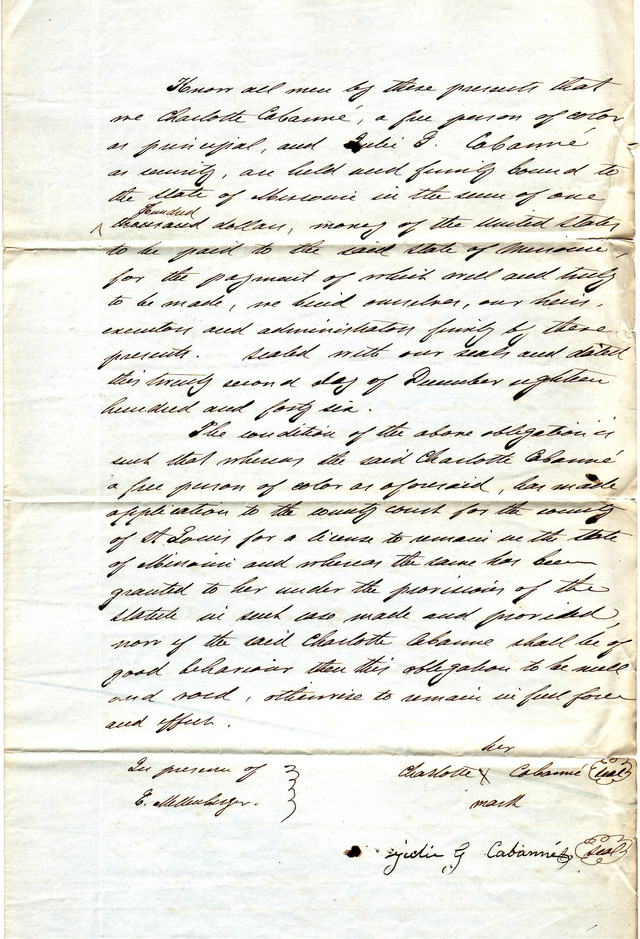 Know all men by these presents that
we Charlotte Cabanné, a free person of color
as principal, and Julie G. Cabanné
as security, are held and firmly bound to
the State of Missouri in the sum of one
hundred
thousand dollars, money of the United States
to be paid to the said State of Missouri,
for the payment of which well and truly
to be made, we bind ourselves, our heirs,
executors and administrators firmly by these
presents. Sealed with our seals and dated
this twenty second day of December eighteen
hundred and forty six.
The condition of the above obligation is
such that whereas the said Charlotte Cabanné
a free person of color as aforesaid, has made
application to the county court for the county
of St Louis for a license to remain in the State
of Missouri and whereas the same has been
granted to her under the provisions of the
Statute in such case made and provided,
now if the said Charlotte Cabanné shall be of
good behaviour then this obligation to be null
and void, otherwise to remain in full force
and effect.
her
In presence of Charlotte X Cabanné Seal
E. mark
G Cabanné Seal